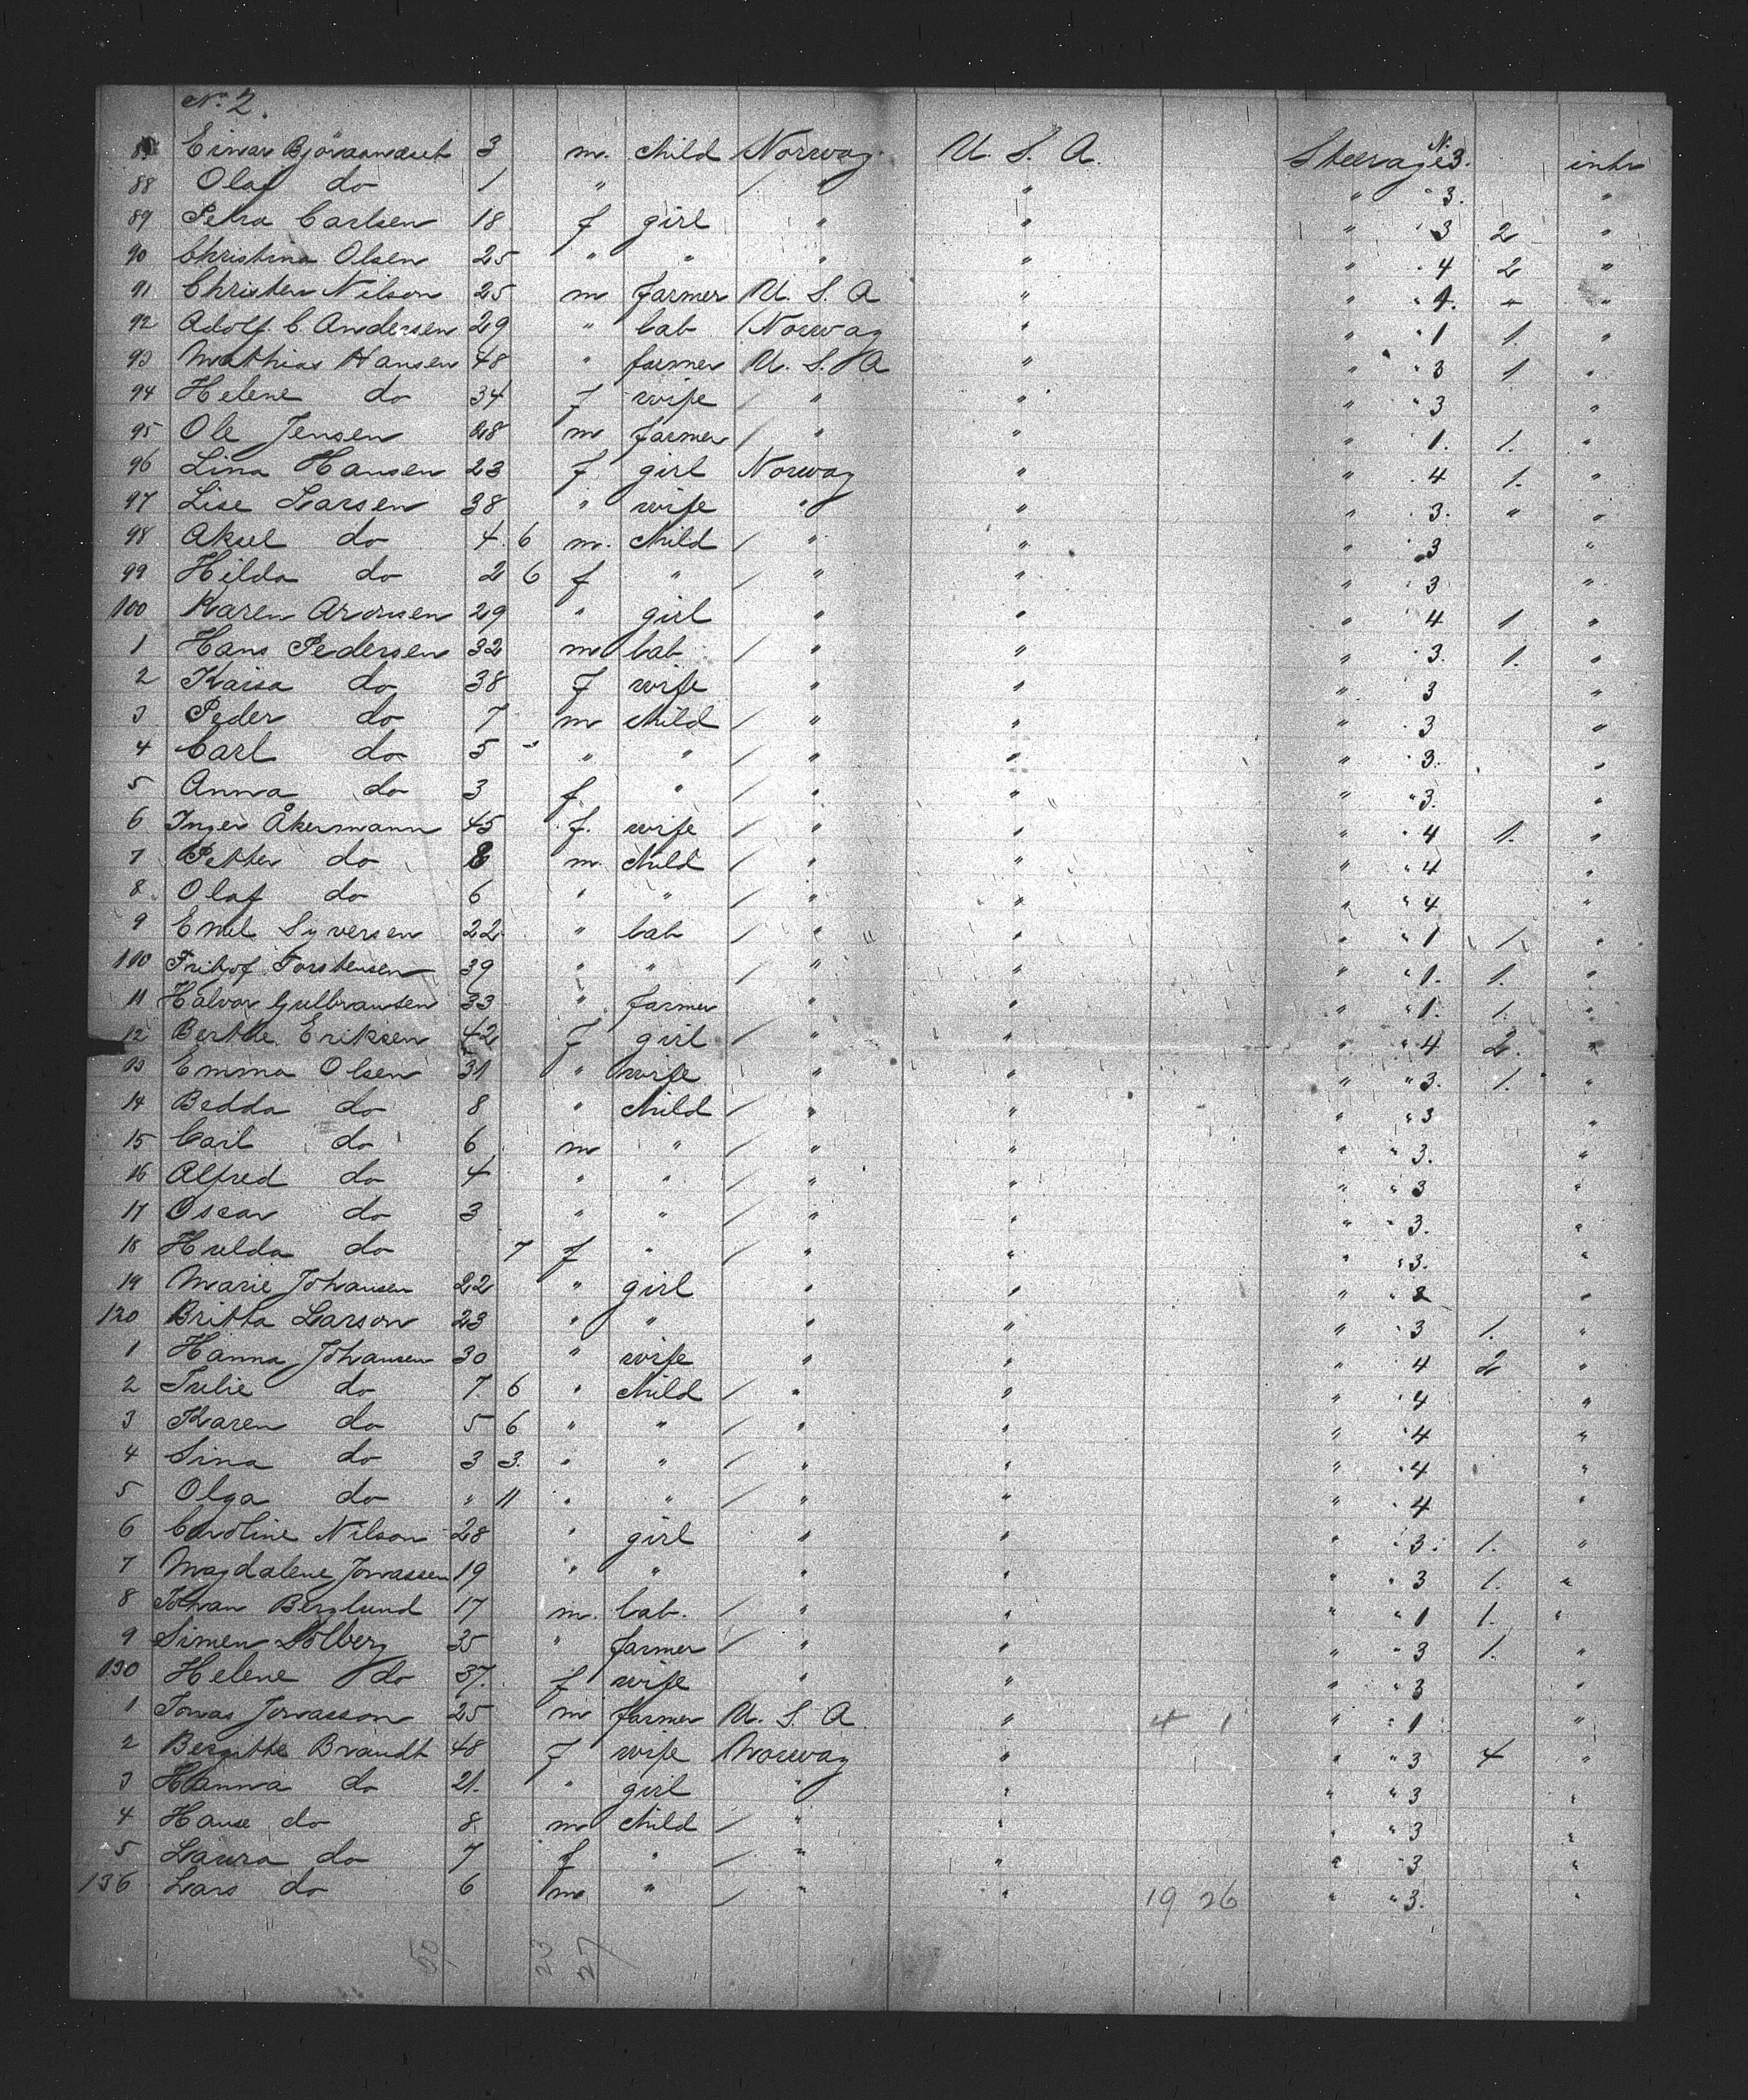 No. 2.
Einar 3 m. child Norway U. S. A. Steerage N. 3. intr
88 Olaf do 1 " " " " " 3. "
89 Petra Carlsen 18 f girl " " " " 3 2 "
90 Christina Olsen 25 " " " " " " 4 2 "
91 Christen Nilson 25 m farmer U. S. A " " " 1. " "
92 Adolf C. Andersen 29 " lab Norway " " " 1 1. "
93 Mathias Hansen 48 " farmer U. S. A " " " 3 1 "
94 Helene do 34 f wife " " " " 3 "
95 Ole Jensen m farmer " " " 1. 1. "
96 Lina Hansen 23 f girl Norway " " " 4 1. "
97 Lise Larsen 38 " wife " " " " 3. " "
98 Aksel do 4 6 m. child " " " " 3 "
99 Hilda do 2 6 f " " " " " 3 "
100 Karen 29 " girl " " " " 4 1 "
1 Hans Pedersen 32 m lab " " " " 3. 1. "
2 Kaisa do 38 f wife " " " 3 "
3 Peder do 7 m child " " " " 3 "
4 Carl do 5 " " " " " " " 3. "
5 Anna do 3 f " " " " " 3. "
6 Inger Åkermann 45 f. wife " " " " 4 1. "
7 Petter do 8 m. child " " " " 4 "
8 Olaf do 6 " " " " " " 4 "
9 Emil Syversen 22 " lab " " " " 1 1. "
110 Frithjof Torstensen 39 " " " " " " 1. 1. "
11 Halvor Gulbransen 33 " farmer " " " " 1. 1. "
12 Berthe Eriksen 42 f girl " " " " 4 2. "
13 Emma Olsen 31 " wife " " " " 3. 1. "
14 Bedda do 8 " child " " " " 3 "
15 Carl do 6 m " " " " " 3. "
16 Alfred do 4 " " " " " " 3 "
17 Oscar do 3 " " " " " " 3. "
18 Hulda do 7 f " " " " " 3. "
19 Marie Johansen 22 " girl " " " " "
120 Britta Larson 23 " " " " " " 3 1. "
1 Hanna Johansen 30 " wife " " " " 4 2 "
2 Julie do 7. 6 " child " " " " 4 "
3 Karen do 5 6 " " " " " " 4 "
4 Sina do 3 3. " " " " " " 4 "
5 Olga do " 11 " " " " " " 4 "
6 Caroline Nilson 28 " girl " " " " 3. 1. "
7 Magdalene Jonassen 19 " " " " " " 3 1. "
8 Johan Berglund 17 m. lab. " " " " 1 1. "
9 Simen Solberg 35 " farmer " " " " 3 1. "
130 Helene do 37. f wife " " " " 3 "
1 Jonas Jonasson 25 m farmer U. S. A " 4 1 " " 1 "
2 Bergitte Brandt 48 f wife Norway " " " 3 4 "
3 Hanna do 21. " girl " " " " 3 "
4 Hans do 8 m child " " " " 3 "
5 Laura do 7 f " " " " " 3 "
136 Lars do 6 m " " " 19 26 " " 3. "
50 23 27